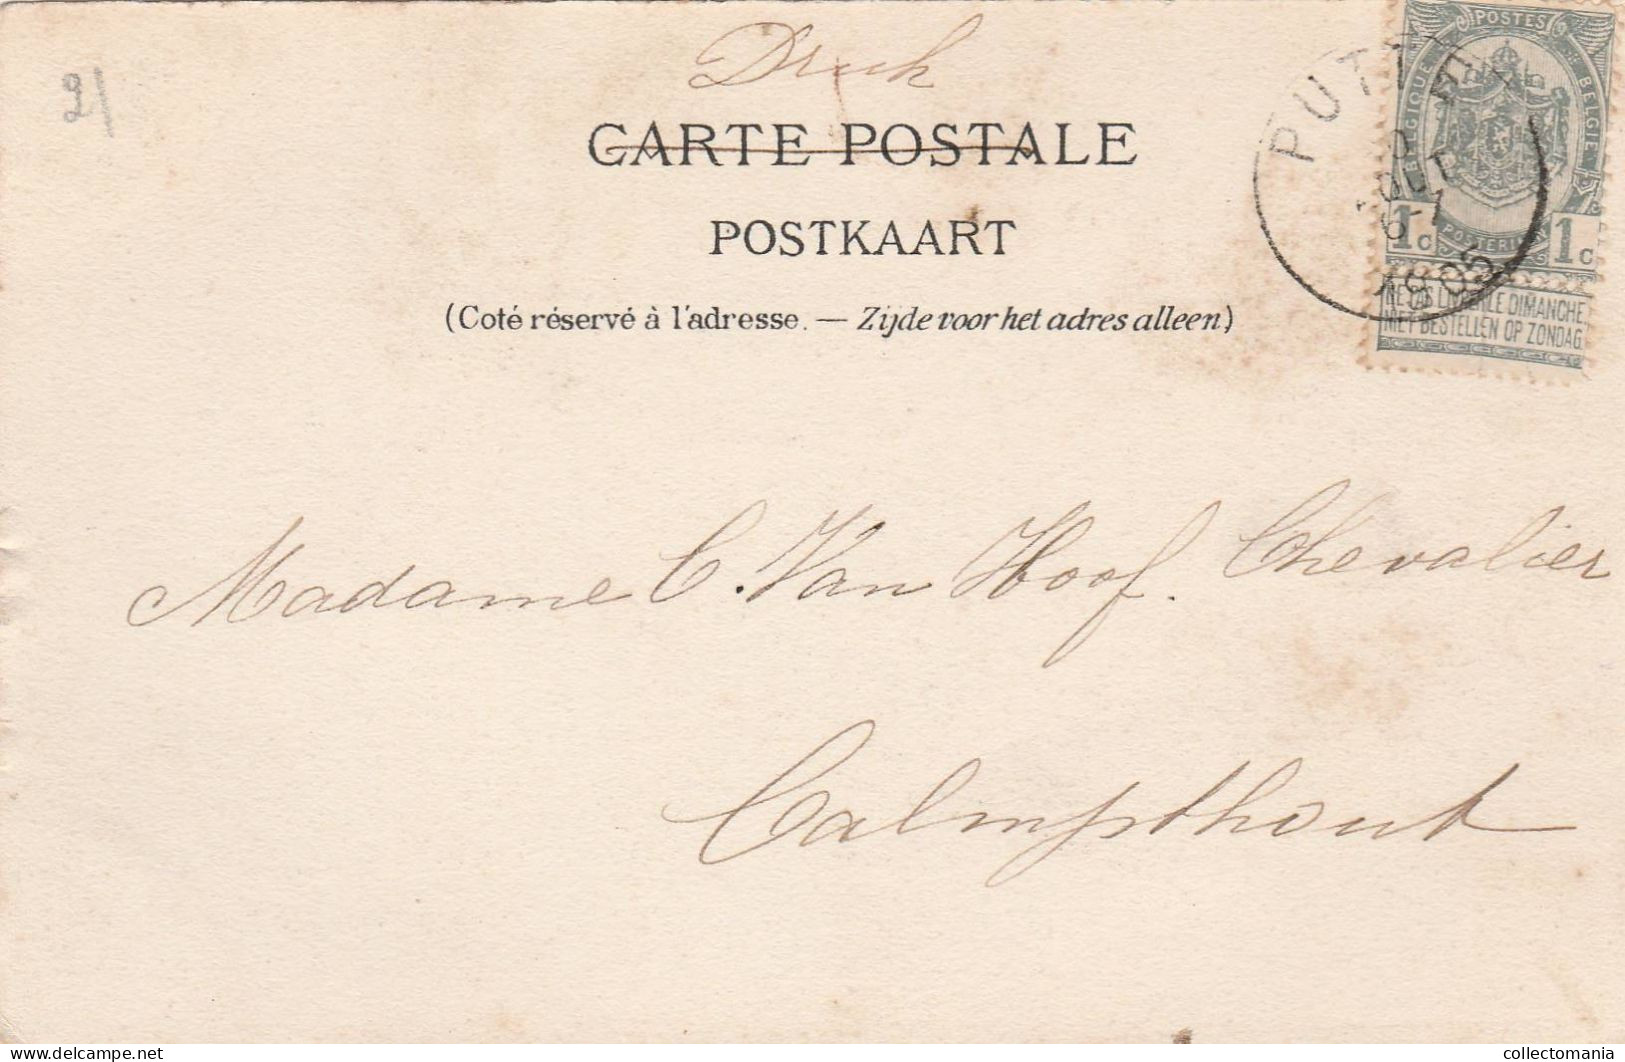 Druk
21
CARTE POSTALE
POSTKAART
(Coté réservé à l'adresse. — Zijde voor het adres alleen)
POSTES
BELGIQUE
BELGIE
POSTERIJEN
1c 1c
NE PAS LIVRER LE DIMANCHE
NIET BESTELLEN OP ZONDAG
PUTTE
6-7
1905
Madame C. Van Hoof. Chevalier
Calmpthout
collectomania